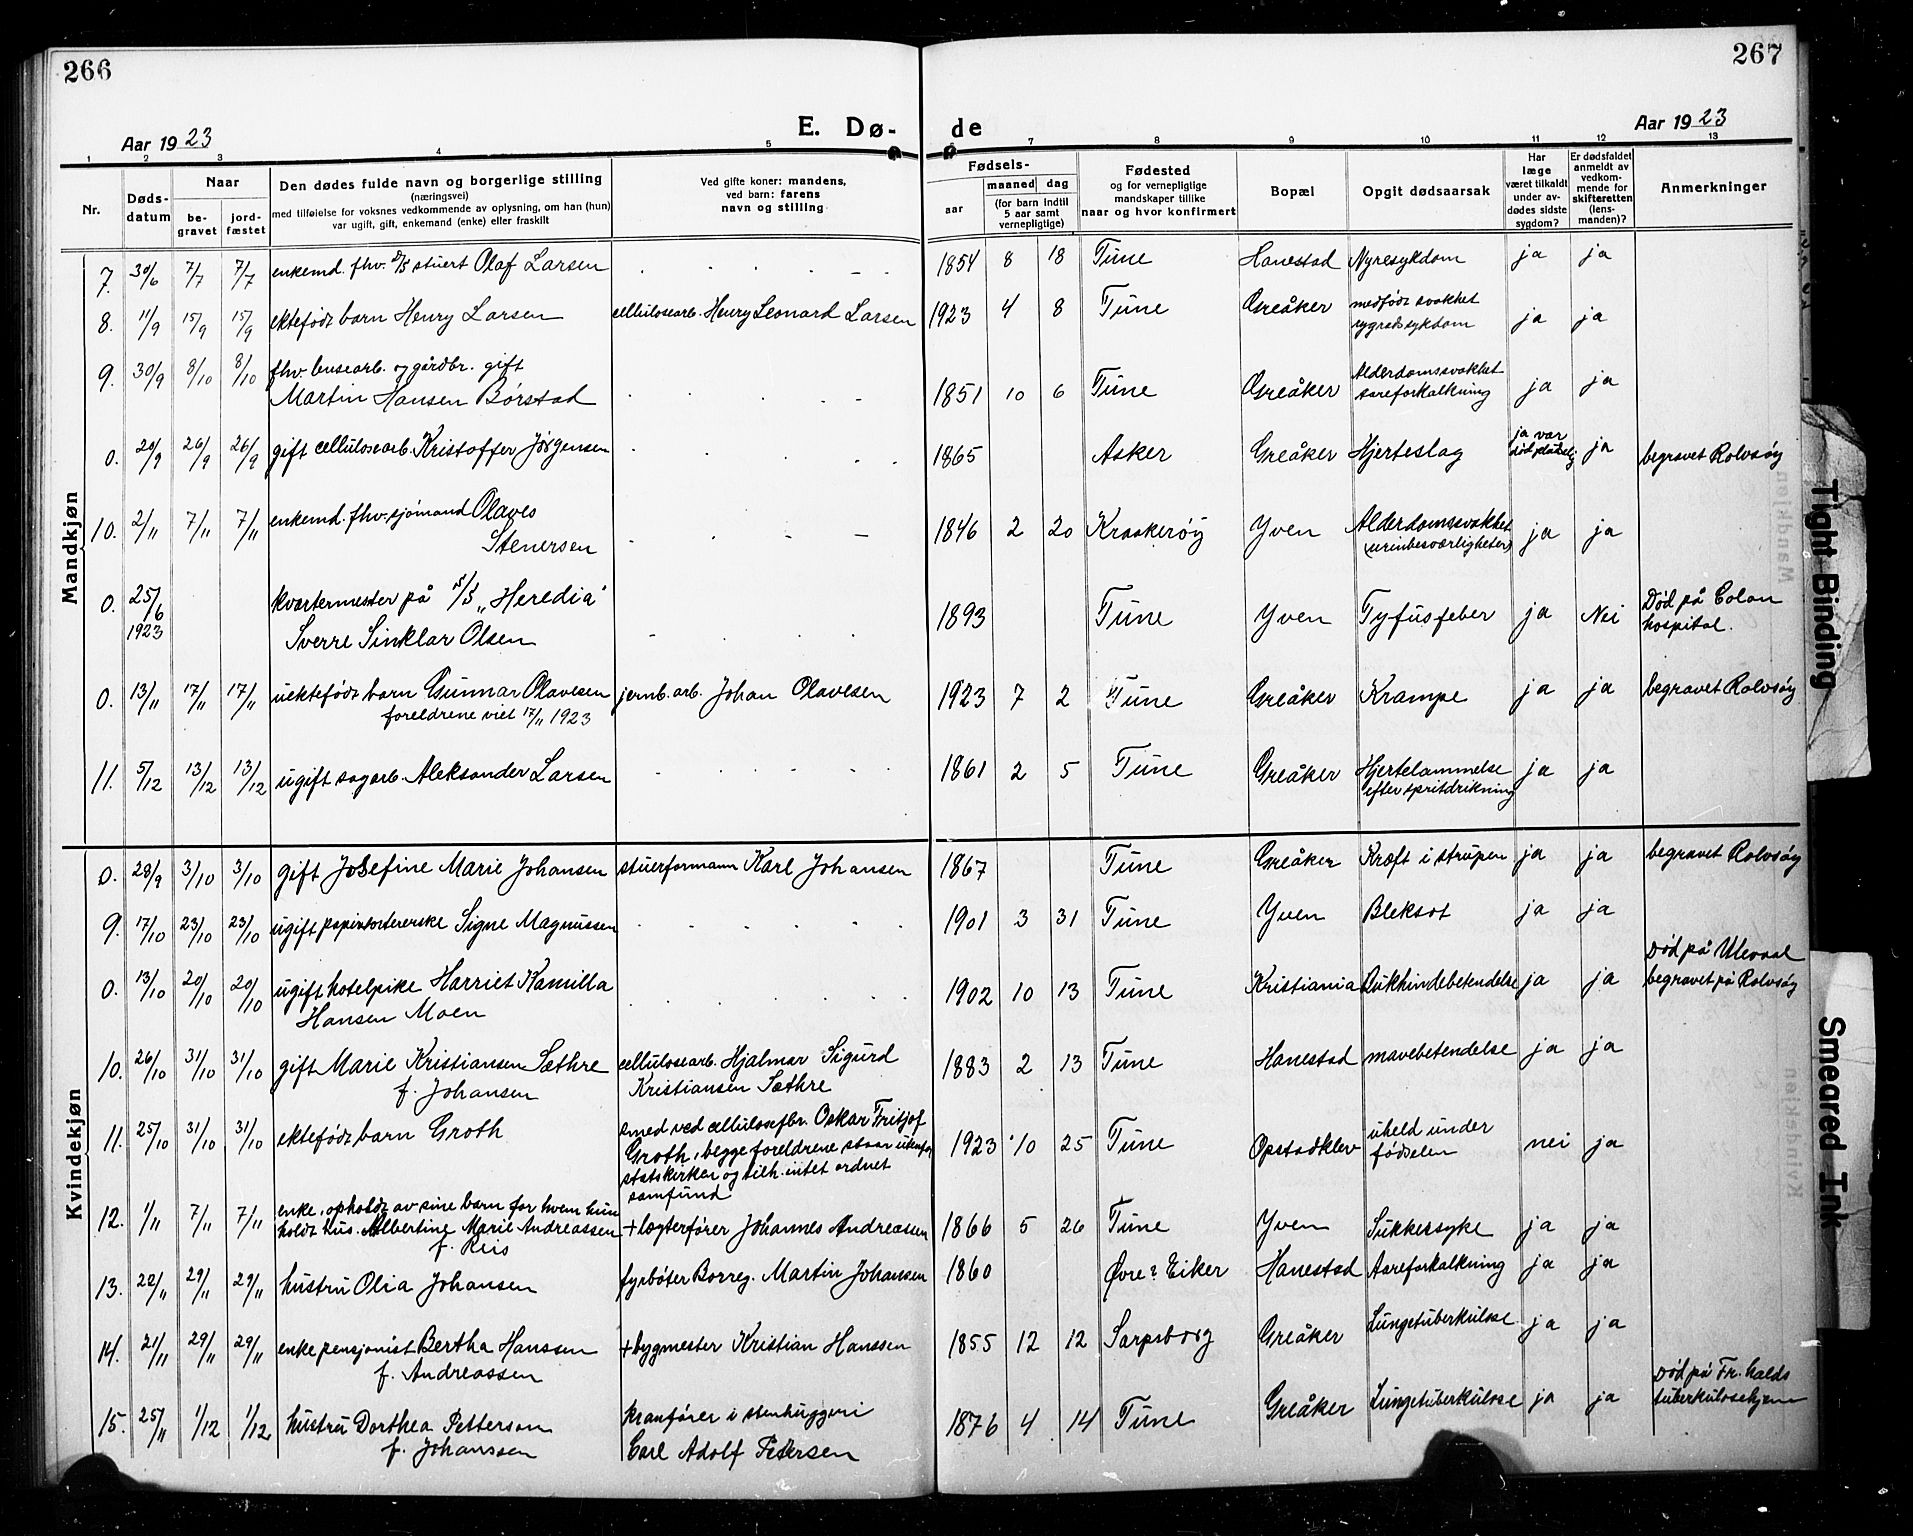 266
267
E. Dø-
de
Aar 1923
Aar 1923
1 2 3 4 5 6 7 8 9 10 11 12 13
Nr.
Døds-
datum
Naar
be-
gravet
jord-
fæstet
Den dødes fulde navn og borgerlige stilling
(næringsvei)
med tilføielse for voksnes vedkommende av oplysning, om han (hun)
var ugift, gift, enkemand (enke) eller fraskilt
Ved gifte koner: mandens,
ved barn: farens
navn og stilling
Fødsels-
aar
maaned dag
(for barn indtil
5 aar samt
vernepligtige)
Fødested
og for vernepligtige
mandskaper tillike
naar og hvor konfirmert
Bopæl
Opgit dødsaarsak
Har
læge
været tilkaldt
under av-
dødes sidste
sygdom?
Er dødsfaldet
anmeldt av
vedkom-
mende for
skifteretten
(lens-
manden)?
Anmerkninger
Mandkjøn
7. 30/6 7/7 7/7 enkemd. fhv. D/S stuert Olaf Larsen 1854 8 18 Tune Hanestad Nyresykdom ja ja
8. 11/9 15/9 15/9 ektefødt barn Henry Larsen cellulosearb. Henry Leonard Larsen 1923 4 8 Tune Greåker medfødt svakhet
rygradssykdom ja ja
9. 30/9 8/10 8/10 fhv. lensearb. og gårdbr. gift
Martin Hansen Børstad 1851 10 6 Tune Greåker Alderdomssvakhet
aareforkalkning ja ja
0. 20/9 26/9 26/9 gift cellulosearb. Kristoffer Jørgensen 1865 Asker Greåker Hjerteslag ja var
død pludselig ja begravet Rolvsøy
10. 2/11 7/11 7/11 enkemd. fhv. sjömand Olaves
Stenersen 1846 2 20 Kraakerøy Yven Alderdomssvakhet
(urinbesværligheter) ja ja
0. 25/6
1923 kvartermester på S/S „Heredia"
Sverre Sinklar Olsen 1893 Tune Yven Tyfusfeber ja Nei Død på Colon
hospital.
0. 13/11 17/11 17/11 uektefødt barn Gunnar Olavesen jernb. arb. Johan Olavesen 1923 7 2 Tune Greåker Krampe ja ja begravet Rolvsøy
foreldrene viet 17/11 1923
11. 5/12 13/12 13/12 ugift sagarb. Aleksander Larsen 1861 2 5 Tune Greåker Hjertelammelse
efter spritdrikning ja ja
Kvindekjøn
0. 28/9 3/10 3/10 gift Josefine Marie Johansen stuerformann Karl Johansen 1867 Tune Greåker Kræft i strupen ja ja begravet Rolvsøy
9. 17/10 23/10 23/10 ugift papirsorterske Signe Magnussen 1901 3 31 Tune Yven Bleksot ja ja
0. 13/10 20/10 20/10 ugift hotelpike Harriet Kamilla
Hansen Moen 1902 10 13 Tune Kristiania Bukhindebetendelse ja ja Død på Ulevaal
begravet på Rolvsøy
10. 26/10 31/10 31/10 gift Marie Kristiansen Sæthre
f. Johansen cellulosearb. Hjalmar Sigurd
Kristiansen Sæthre 1883 2 13 Tune Hanestad mavebetendelse ja ja
11. 25/10 31/10 31/10 ektefødt barn Groth smed ved cellulosefbr. Oskar Fritjof
Groth, begge foreldrene staar utenfor
statskirken og tilh. intet ordnet
samfund 1923 10 25 Tune Opstadklev uheld under
fødselen nei ja
12. 1/11 7/11 7/11 enke, opholdt av sine barn for hvem hun
holdt hus. Albertine Marie Andreassen
f. Reis + lægterfører Johannes Andreassen 1866 5 26 Tune Yven Sukkersyke ja ja
13. 22/11 29/11 29/11 hustru Olia Johansen fyrbøter Borreg. Martin Johansen 1860 Øvre? Eiker Hanestad Aareforkalkning ja ja
14. 21/11 29/11 29/11 enke pensjonist Bertha Hanssen
f. Andreassen + bygmester Kristian Hanssen 1855 12 12 Sarpsborg Greåker Lungetuberkulose ja ja
15. 25/11 1/12 1/12 hustru Dorthea Petterson
f. Johanssen kranfører i stenhuggeri
Carl Adolf Pedersen 1876 4 14 Tune Greåker Lungetuberkulose ja ja Død på Fr. halds
tuberkulosehjem
Tight Binding
Smeared Ink
Mandkjøn
Kvindekjøn